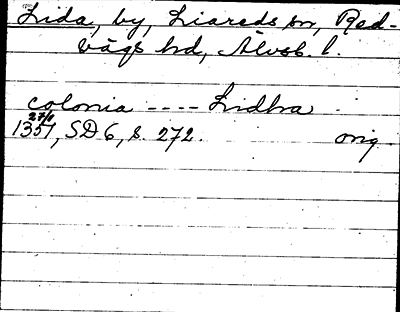 Lida, by, Liareds sn, Red-
vägs hd, Älvsb. l.
colonia ---- Lidha
27/1
1351, SD 6, s. 272. orig.